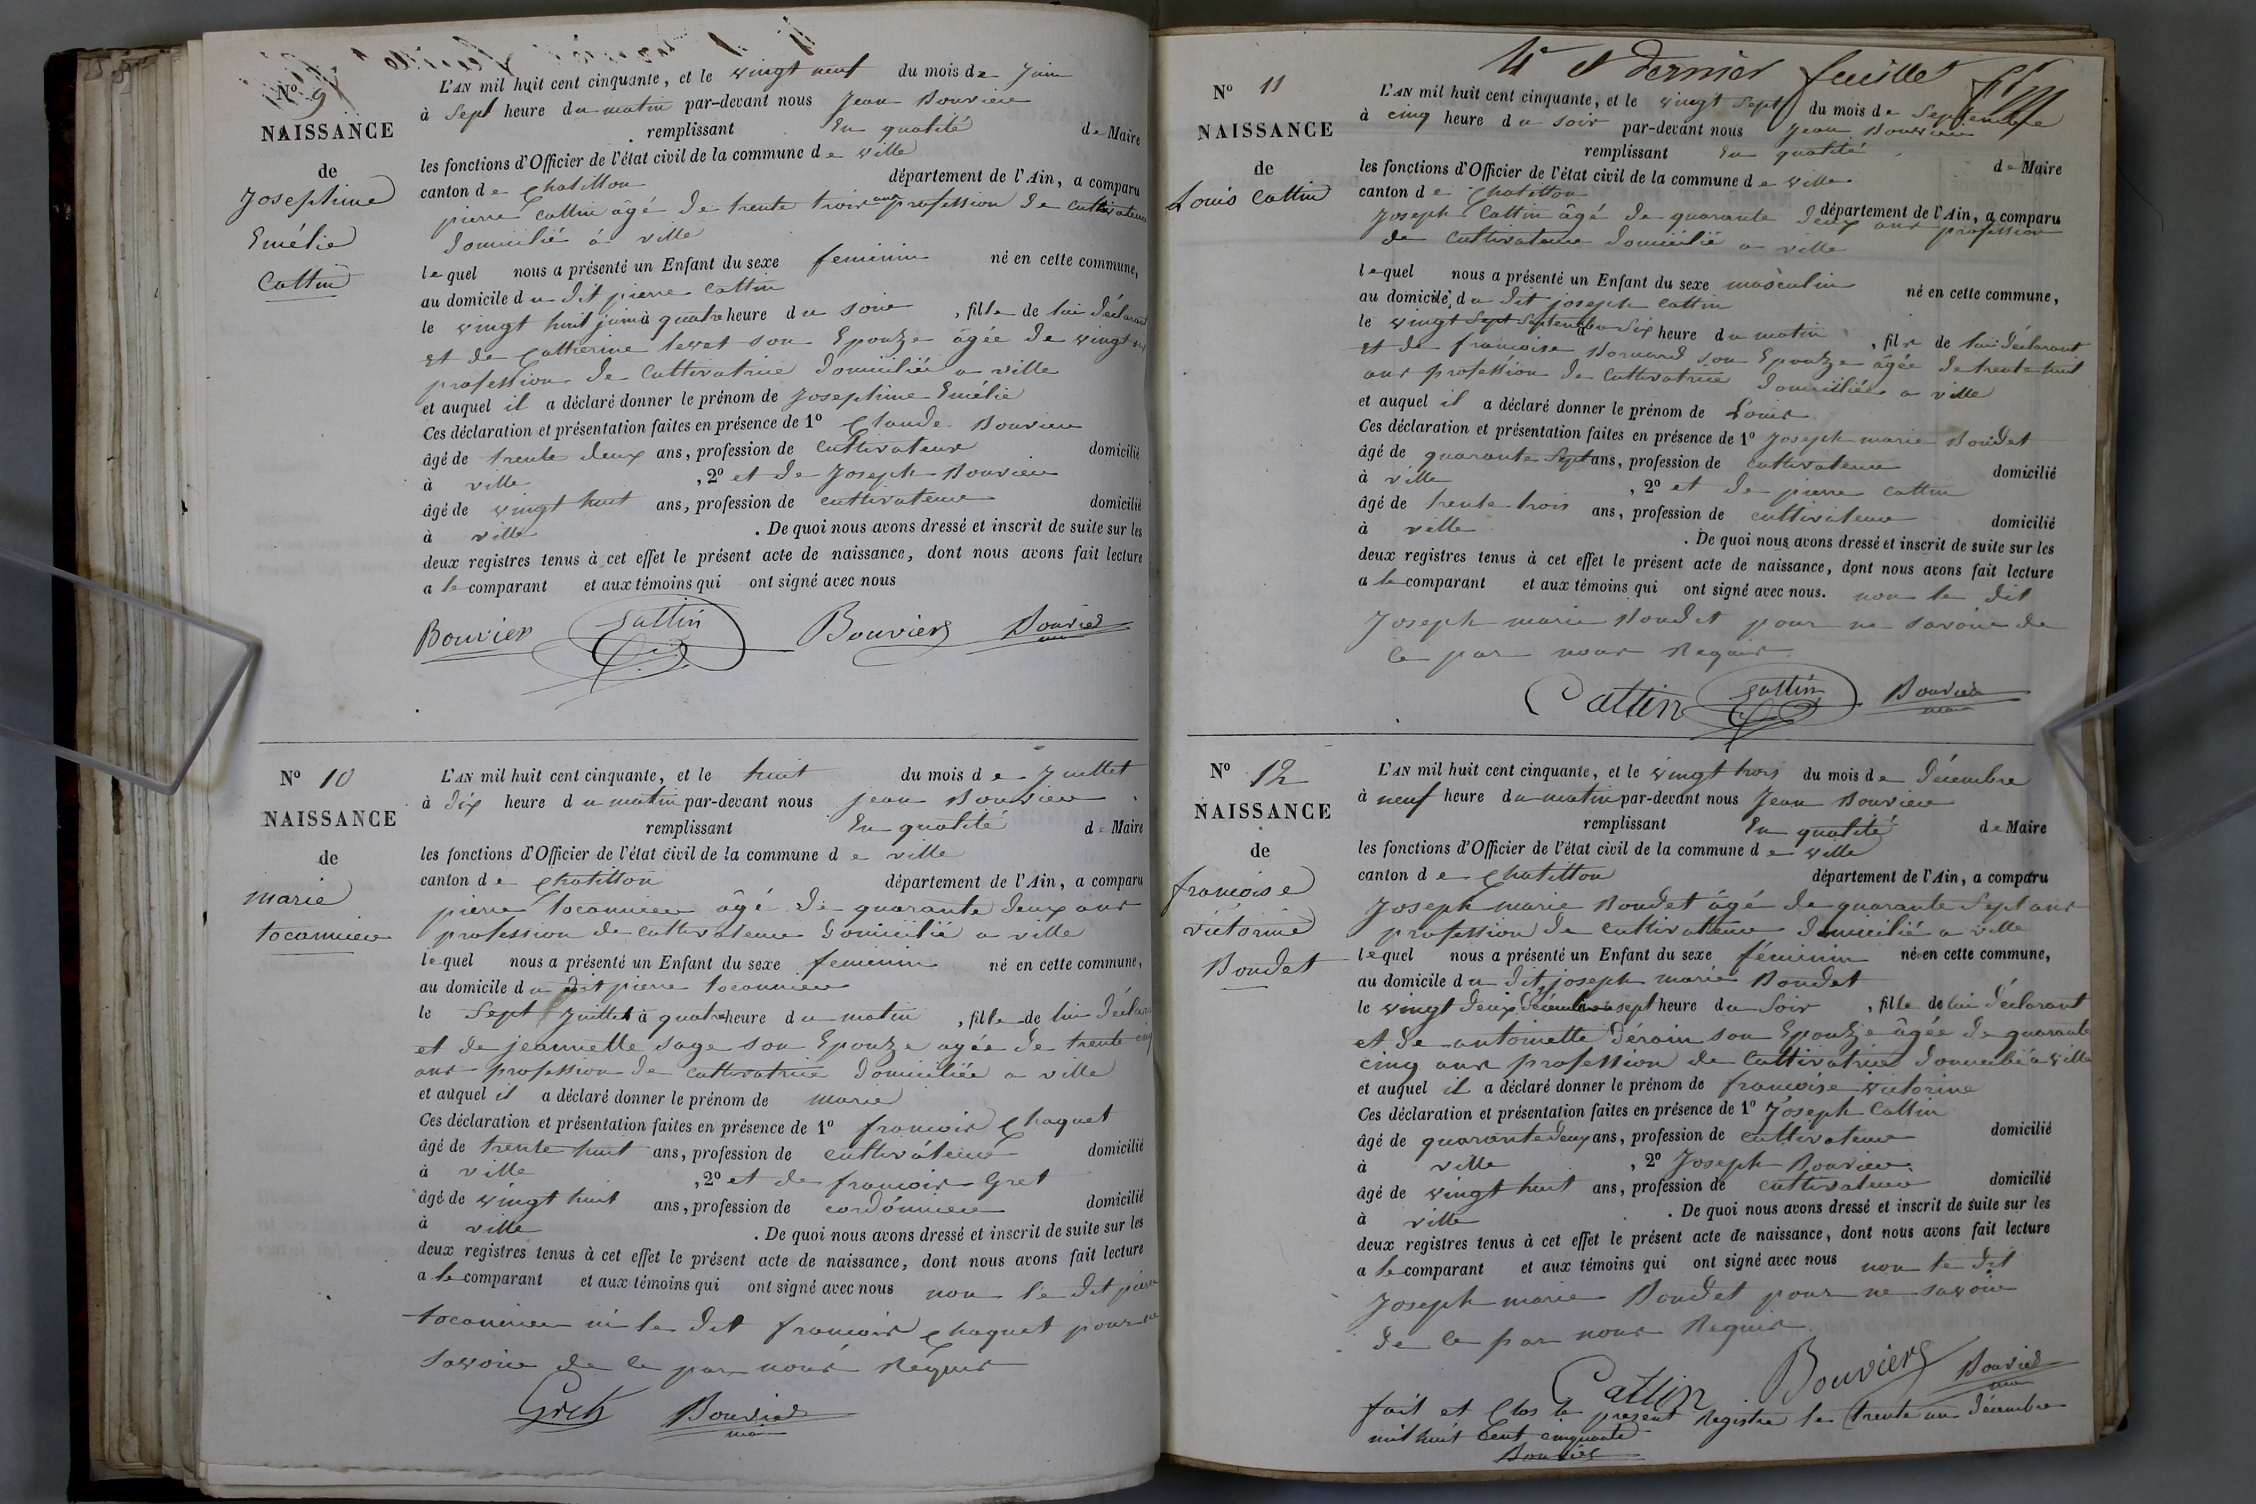 N° 9
NAISSANCE
de
Josephine
Emélie
Cattin
L'AN mil huit cent cinquante, et le vingt neuf du mois de Juin
à Sept heure du matin par-devant nous Jean Bouvier
remplissant En qualité de Maire
les fonctions d'Officier de l'état civil de la commune de ville
canton de Chatillon département de l'Ain, a comparu
pierre Cattin âgé de trente trois ans profession de cultivateur
domicilié à ville
lequel nous a présenté un Enfant du sexe feminin né en cette commune,
au domicile du dit pierre Cattin
le vingt huit juin à quatre heure du soir, fille de lui déclarant
et de Catherine levet son Epouze âgée de vingt
profession de Cultivatrice domiciliée a ville
et auquel il a déclaré donner le prénom de Josephine Emélie
Ces déclaration et présentation faites en présence de 1° Claude Bouvier
âgé de trente deux ans, profession de cultivateur domicilié
à ville, 2° et de Joseph Bouvier
âgé de vingt huit ans, profession de cultivateur domicilié
à ville. De quoi nous avons dressé et inscrit de suite sur les
deux registres tenus à cet effet le présent acte de naissance, dont nous avons fait lecture
a le comparant et aux témoins qui ont signé avec nous
Bouvier Cattin Bouvier Bouvier
N° 10
NAISSANCE
de
marie
tocannier
L'AN mil huit cent cinquante, et le huit du mois de Juillet
à dix heure du matin par-devant nous jean Bouvier
remplissant En qualité de Maire
les fonctions d'Officier de l'état civil de la commune de ville
canton de Chatillon département de l'Ain, a comparu
pierre tocannier âgé de quarante deux ans
profession de cultivateur domicilié a ville
lequel nous a présenté un Enfant du sexe feminin né en cette commune,
au domicile du dit pierre tocannier
le Sept Juillet à quatre heure du matin, fille de lui déclarant
et de jeannette sage son Epouze agée de trente cinq
ans profession de cultivatrice domiciliée a ville
et auquel il a déclaré donner le prénom de marie
Ces déclaration et présentation faites en présence de 1° francois Chaquet
âgé de trente huit ans, profession de cultivateur domicilié
à ville, 2° et de francois Gret
âgé de vingt huit ans, profession de cordonnier domicilié
à ville. De quoi nous avons dressé et inscrit de suite sur les
deux registres tenus à cet effet le présent acte de naissance, dont nous avons fait lecture
a le comparant et aux témoins qui ont signé avec nous non le dit pierre
tocannier ni le dit francois Chaquet pour ne
savoir de ce par nous Requis
Bouvier
4e et dernier feuillet
N° 11
NAISSANCE
de
Louis Cattin
L'AN mil huit cent cinquante, et le vingt Sept du mois de Septembre
à cinq heure du soir par-devant nous Jean Bouvier
remplissant En qualité de Maire
les fonctions d'Officier de l'état civil de la commune de ville
canton de Chatillon département de l'Ain, a comparu
Joseph Cattin âgé de quarante deux ans profession
de cultivateur domicilié a ville
lequel nous a présenté un Enfant du sexe masculin né en cette commune,
au domicile du dit joseph Cattin
le vingt Sept Septembre a Six heure du matin, fils de lui déclarant
et de francoise Bornard son Epouze âgée de trente huit
ans profession de Cultivatrice domiciliée a ville
et auquel il a déclaré donner le prénom de Louis
Ces déclaration et présentation faites en présence de 1° Joseph marie Boudet
âgé de quarante Sept ans, profession de cultivateur domicilié
à ville, 2° et de pierre Cattin
âgé de trente trois ans, profession de cultivateur domicilié
à ville. De quoi nous avons dressé et inscrit de suite sur les
deux registres tenus à cet effet le présent acte de naissance, dont nous avons fait lecture
a le comparant et aux témoins qui ont signé avec nous. non le dit
Joseph marie Boudet pour ne savoir de
ce par nous Requis
Cattin Cattin Bouvier
N° 12
NAISSANCE
de
francoise
victorine
Boudet
L'AN mil huit cent cinquante, et le vingt trois du mois de décembre
à neuf heure du matin par-devant nous Jean Bouvier
remplissant En qualité de Maire
les fonctions d'Officier de l'état civil de la commune de ville
canton de Chatillon département de l'Ain, a comparu
Joseph marie Boudet âgé de quarante Sept ans
profession de cultivateur domicilié a ville
lequel nous a présenté un Enfant du sexe féminin né en cette commune,
au domicile du dit joseph marie Boudet
le vingt deux décembre a sept heure du Soir, fille de lui déclarant
et de antoinette déroin son Epouze âgée de quarante
cinq ans profession de Cultivatrice domiciliée a ville
et auquel il a déclaré donner le prénom de francoise victorine
Ces déclaration et présentation faites en présence de 1° Joseph Cattin
âgé de quarante deux ans, profession de cultivateur domicilié
à ville, 2° Joseph Bouvier
âgé de vingt huit ans, profession de cultivateur domicilié
à ville. De quoi nous avons dressé et inscrit de suite sur les
deux registres tenus à cet effet le présent acte de naissance, dont nous avons fait lecture
a le comparant et aux témoins qui ont signé avec nous non le dit
Joseph marie Boudet pour ne savoir
de ce par nous Requis
Cattin Bouvier Bouvier
fait et Clos le présent Registre le trente un décembre
mil huit Cent cinquante
Bouvier